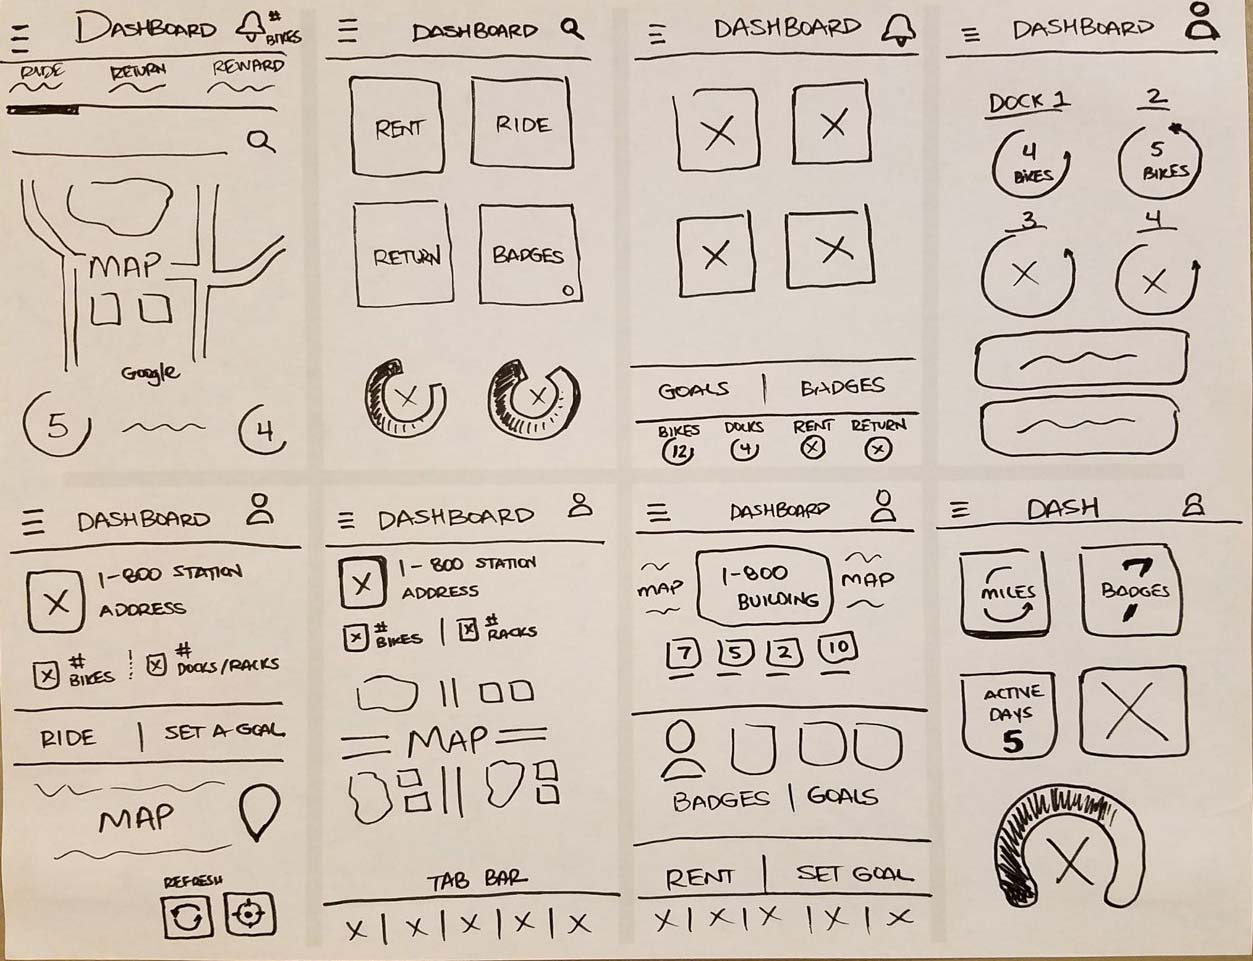 DASHBOARD # BIKES
RIDE RETURN REWARD
MAP
Google
5 4
DASHBOARD
RENT RIDE
RETURN BADGES
X X
DASHBOARD
X X
X X
GOALS | BADGES
BIKES DOCKS RENT RETURN
12 4 X X
DASHBOARD
DOCK 1 2
4 BIKES 5 BIKES
3 4
X X
DASHBOARD
X 1-800 STATION
ADDRESS
X # BIKES X # DOCKS/RACKS
RIDE | SET A GOAL
MAP
REFRESH
DASHBOARD
X 1-800 STATION
ADDRESS
X # BIKES | X # RACKS
MAP
TAB BAR
X | X | X | X | X
DASHBOARD
MAP 1-800 BUILDING MAP
7 5 2 10
BADGES | GOALS
RENT | SET GOAL
X | X | X | X | X
DASH
MILES 7 BADGES
ACTIVE
DAYS
5 X
X